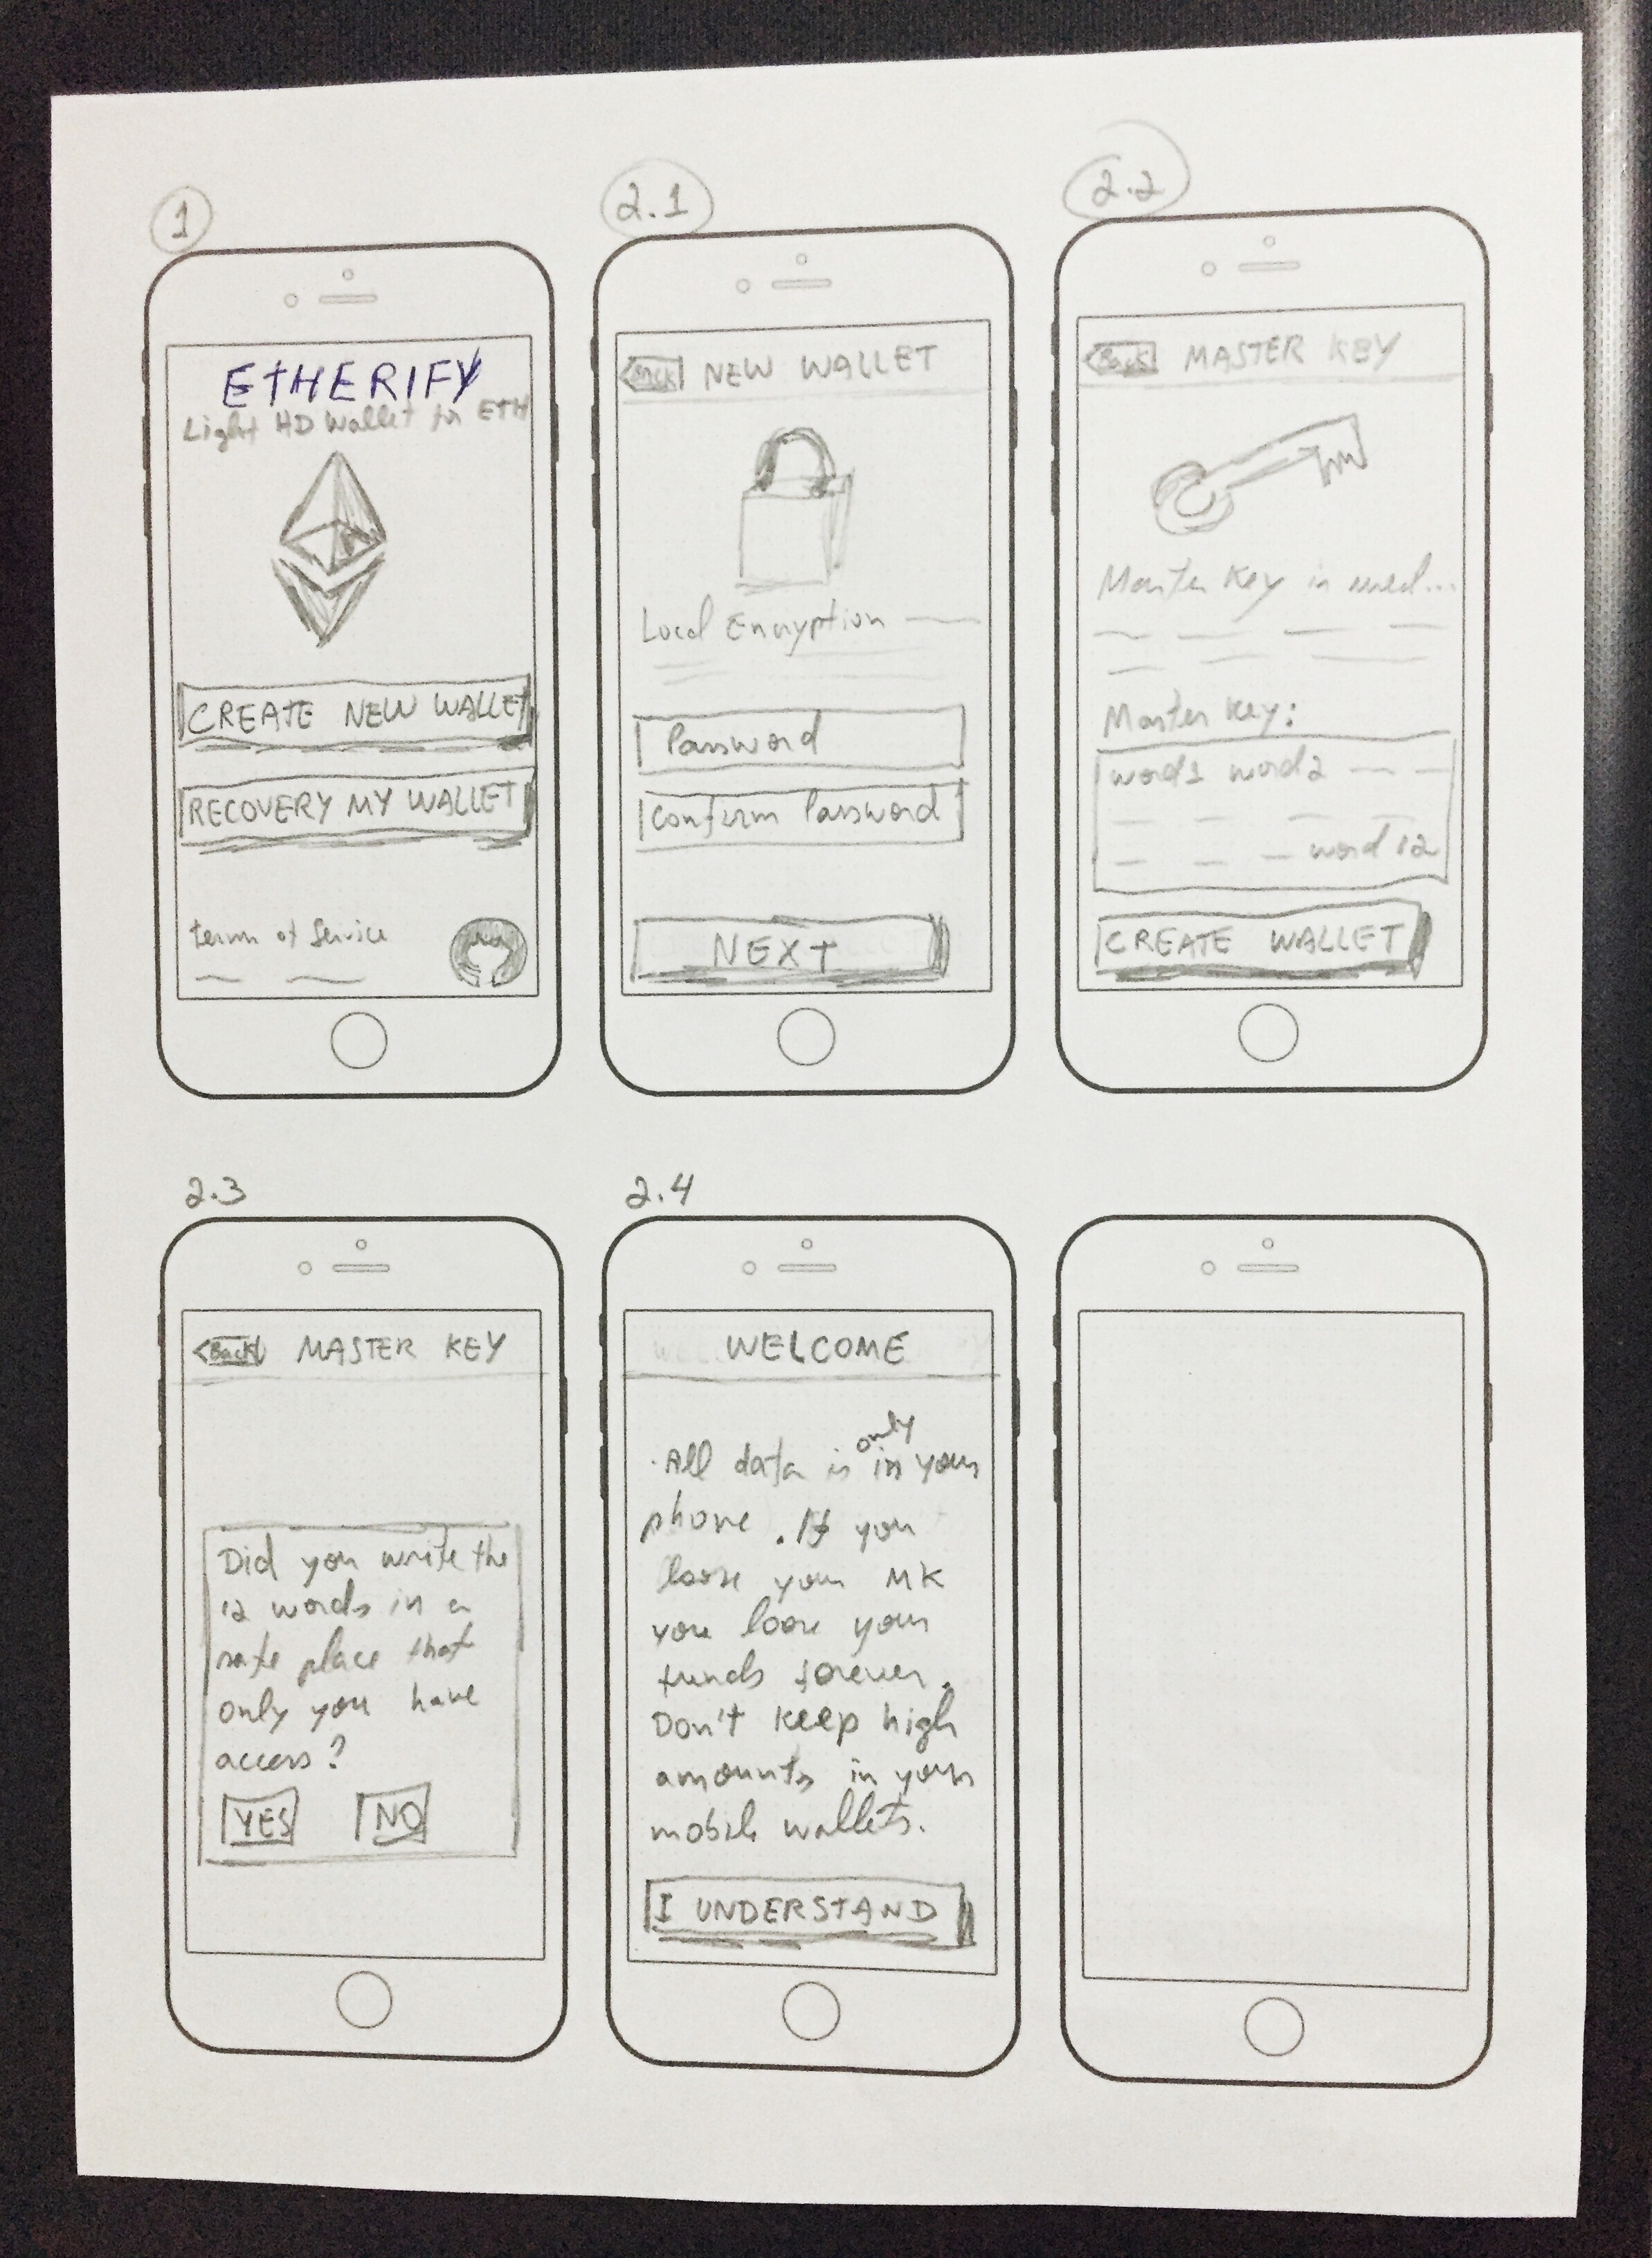 1
ETHERIFY
Light HD Wallet for ETH
CREATE NEW WALLET
RECOVERY MY WALLET
term of Service
2.1
Back NEW WALLET
Local Encryption
Password
Confirm Password
NEXT
2.2
Back MASTER KEY
Master Key is used...
Master Key:
word1 word2
word 12
CREATE WALLET
2.3
Back MASTER KEY
Did you write the
12 words in a
safe place that
only you have
access?
YES NO
2.4
WELCOME
only
. All data is in your
phone . If you
loose your MK
you loose your
funds forever.
Don't keep high
amounts in your
mobile wallets.
I UNDERSTAND